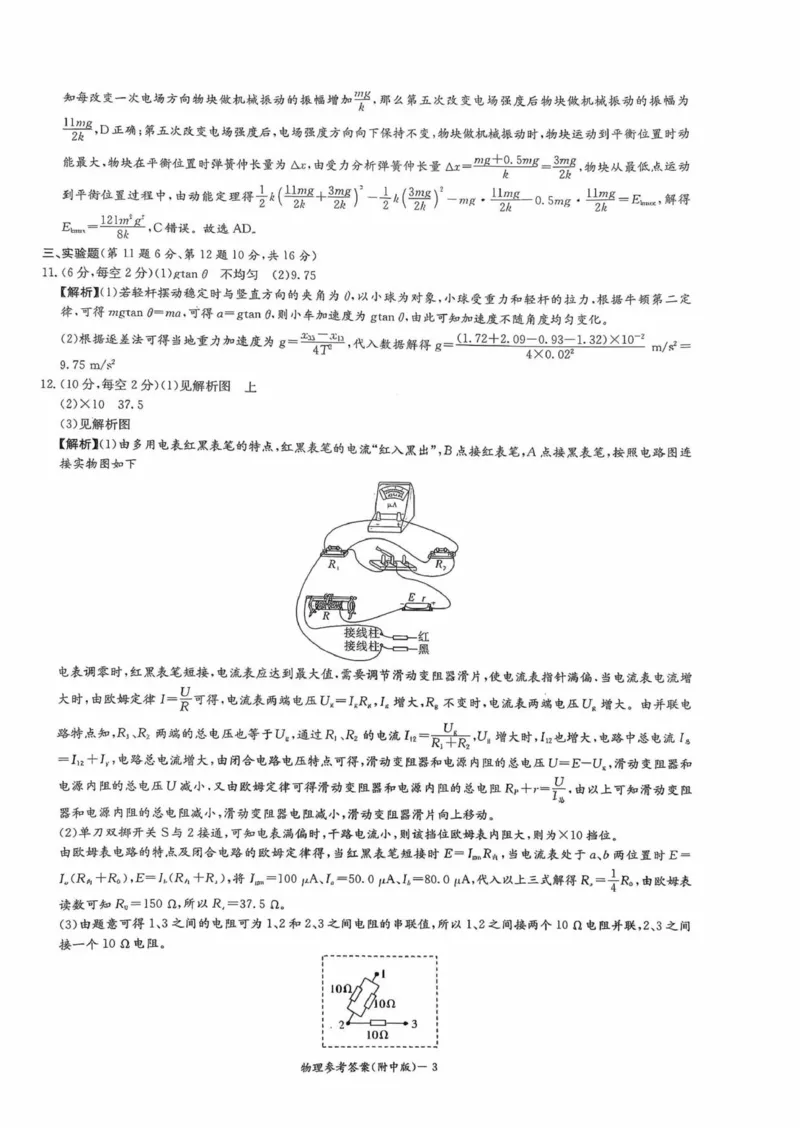 知每改变一次电场方向物块做机械振动的振幅增加mg/k,那么第五次改变电场强度后物块做机械振动的振幅为
11mg/2k,D正确;第五次改变电场强度后,电场强度方向向下保持不变,物块做机械振动时,物块运动到平衡位置时动
能最大,物块在平衡位置时弹簧伸长量为Δx,由受力分析弹簧伸长量Δx=(mg+0.5mg)/k=3mg/2k,物块从最低点运动
到平衡位置过程中,由动能定理得1/2k(11mg/2k+3mg/2k)²-1/2k(3mg/2k)²-mg·11mg/2k-0.5mg·11mg/2k=Eₖₘₐₓ,解得
Eₖₘₐₓ=121m²g²/8k,C错误。故选AD。
三、实验题(第11题6分、第12题10分,共16分)
11.(6分,每空2分)(1)gtan θ 不均匀 (2)9.75
【解析】(1)若轻杆摆动稳定时与竖直方向的夹角为θ,以小球为对象,小球受重力和轻杆的拉力,根据牛顿第二定
律,可得mgtan θ=ma,可得a=gtan θ,则小车加速度为gtan θ,由此可知加速度不随角度均匀变化。
(2)根据逐差法可得当地重力加速度为g=(x₃₅-x₁₃)/4T²,代入数据解得g=(1.72+2.09-0.93-1.32)×10⁻²/(4×0.02²) m/s²=
9.75 m/s²
12.(10分,每空2分)(1)见解析图 上
(2)×10 37.5
(3)见解析图
【解析】(1)由多用电表红黑表笔的特点,红黑表笔的电流“红入黑出”,B点接红表笔,A点接黑表笔,按照电路图连
接实物图如下
μA
R₁
R₂
E r
R
接线柱 红
接线柱 黑
电表调零时,红黑表笔短接,电流表应达到最大值,需要调节滑动变阻器滑片,使电流表指针满偏.当电流表电流增
大时,由欧姆定律I=U/R可得,电流表两端电压U_g=I_gR_g,I_g增大,R_g不变时,电流表两端电压U_g增大。由并联电
路特点知,R₁、R₂两端的总电压也等于U_g,通过R₁、R₂的电流I₁₂=U_g/(R₁+R₂),U_g增大时,I₁₂也增大,电路中总电流I_总
=I₁₂+I_g,电路总电流增大,由闭合电路电压特点可得,滑动变阻器和电源内阻的总电压U=E-U_g,滑动变阻器和
电源内阻的总电压U减小.又由欧姆定律可得滑动变阻器和电源内阻的总电阻R_P+r=U/I_总,由以上可知滑动变阻
器和电源内阻的总电阻减小,滑动变阻器电阻减小,滑动变阻器滑片向上移动。
(2)单刀双掷开关S与2接通,可知电表满偏时,干路电流小,则该挡位欧姆表内阻大,则为×10挡位。
由欧姆表电路的特点及闭合电路的欧姆定律得,当红黑表笔短接时E=I_gmR_内,当电流表处于a、b两位置时E=
I_a(R_内+R₀),E=I_b(R_内+Rₓ),将I_gm=100 μA、I_a=50.0 μA、I_b=80.0 μA,代入以上三式解得Rₓ=1/4R₀,由欧姆表
读数可知R₀=150 Ω,所以Rₓ=37.5 Ω。
(3)由题意可得1、3之间的电阻可为1、2和2、3之间电阻的串联值,所以1、2之间接两个10 Ω电阻并联,2、3之间
接一个10 Ω电阻。
1
10Ω
10Ω
2
3
10Ω
物理参考答案(附中版)— 3